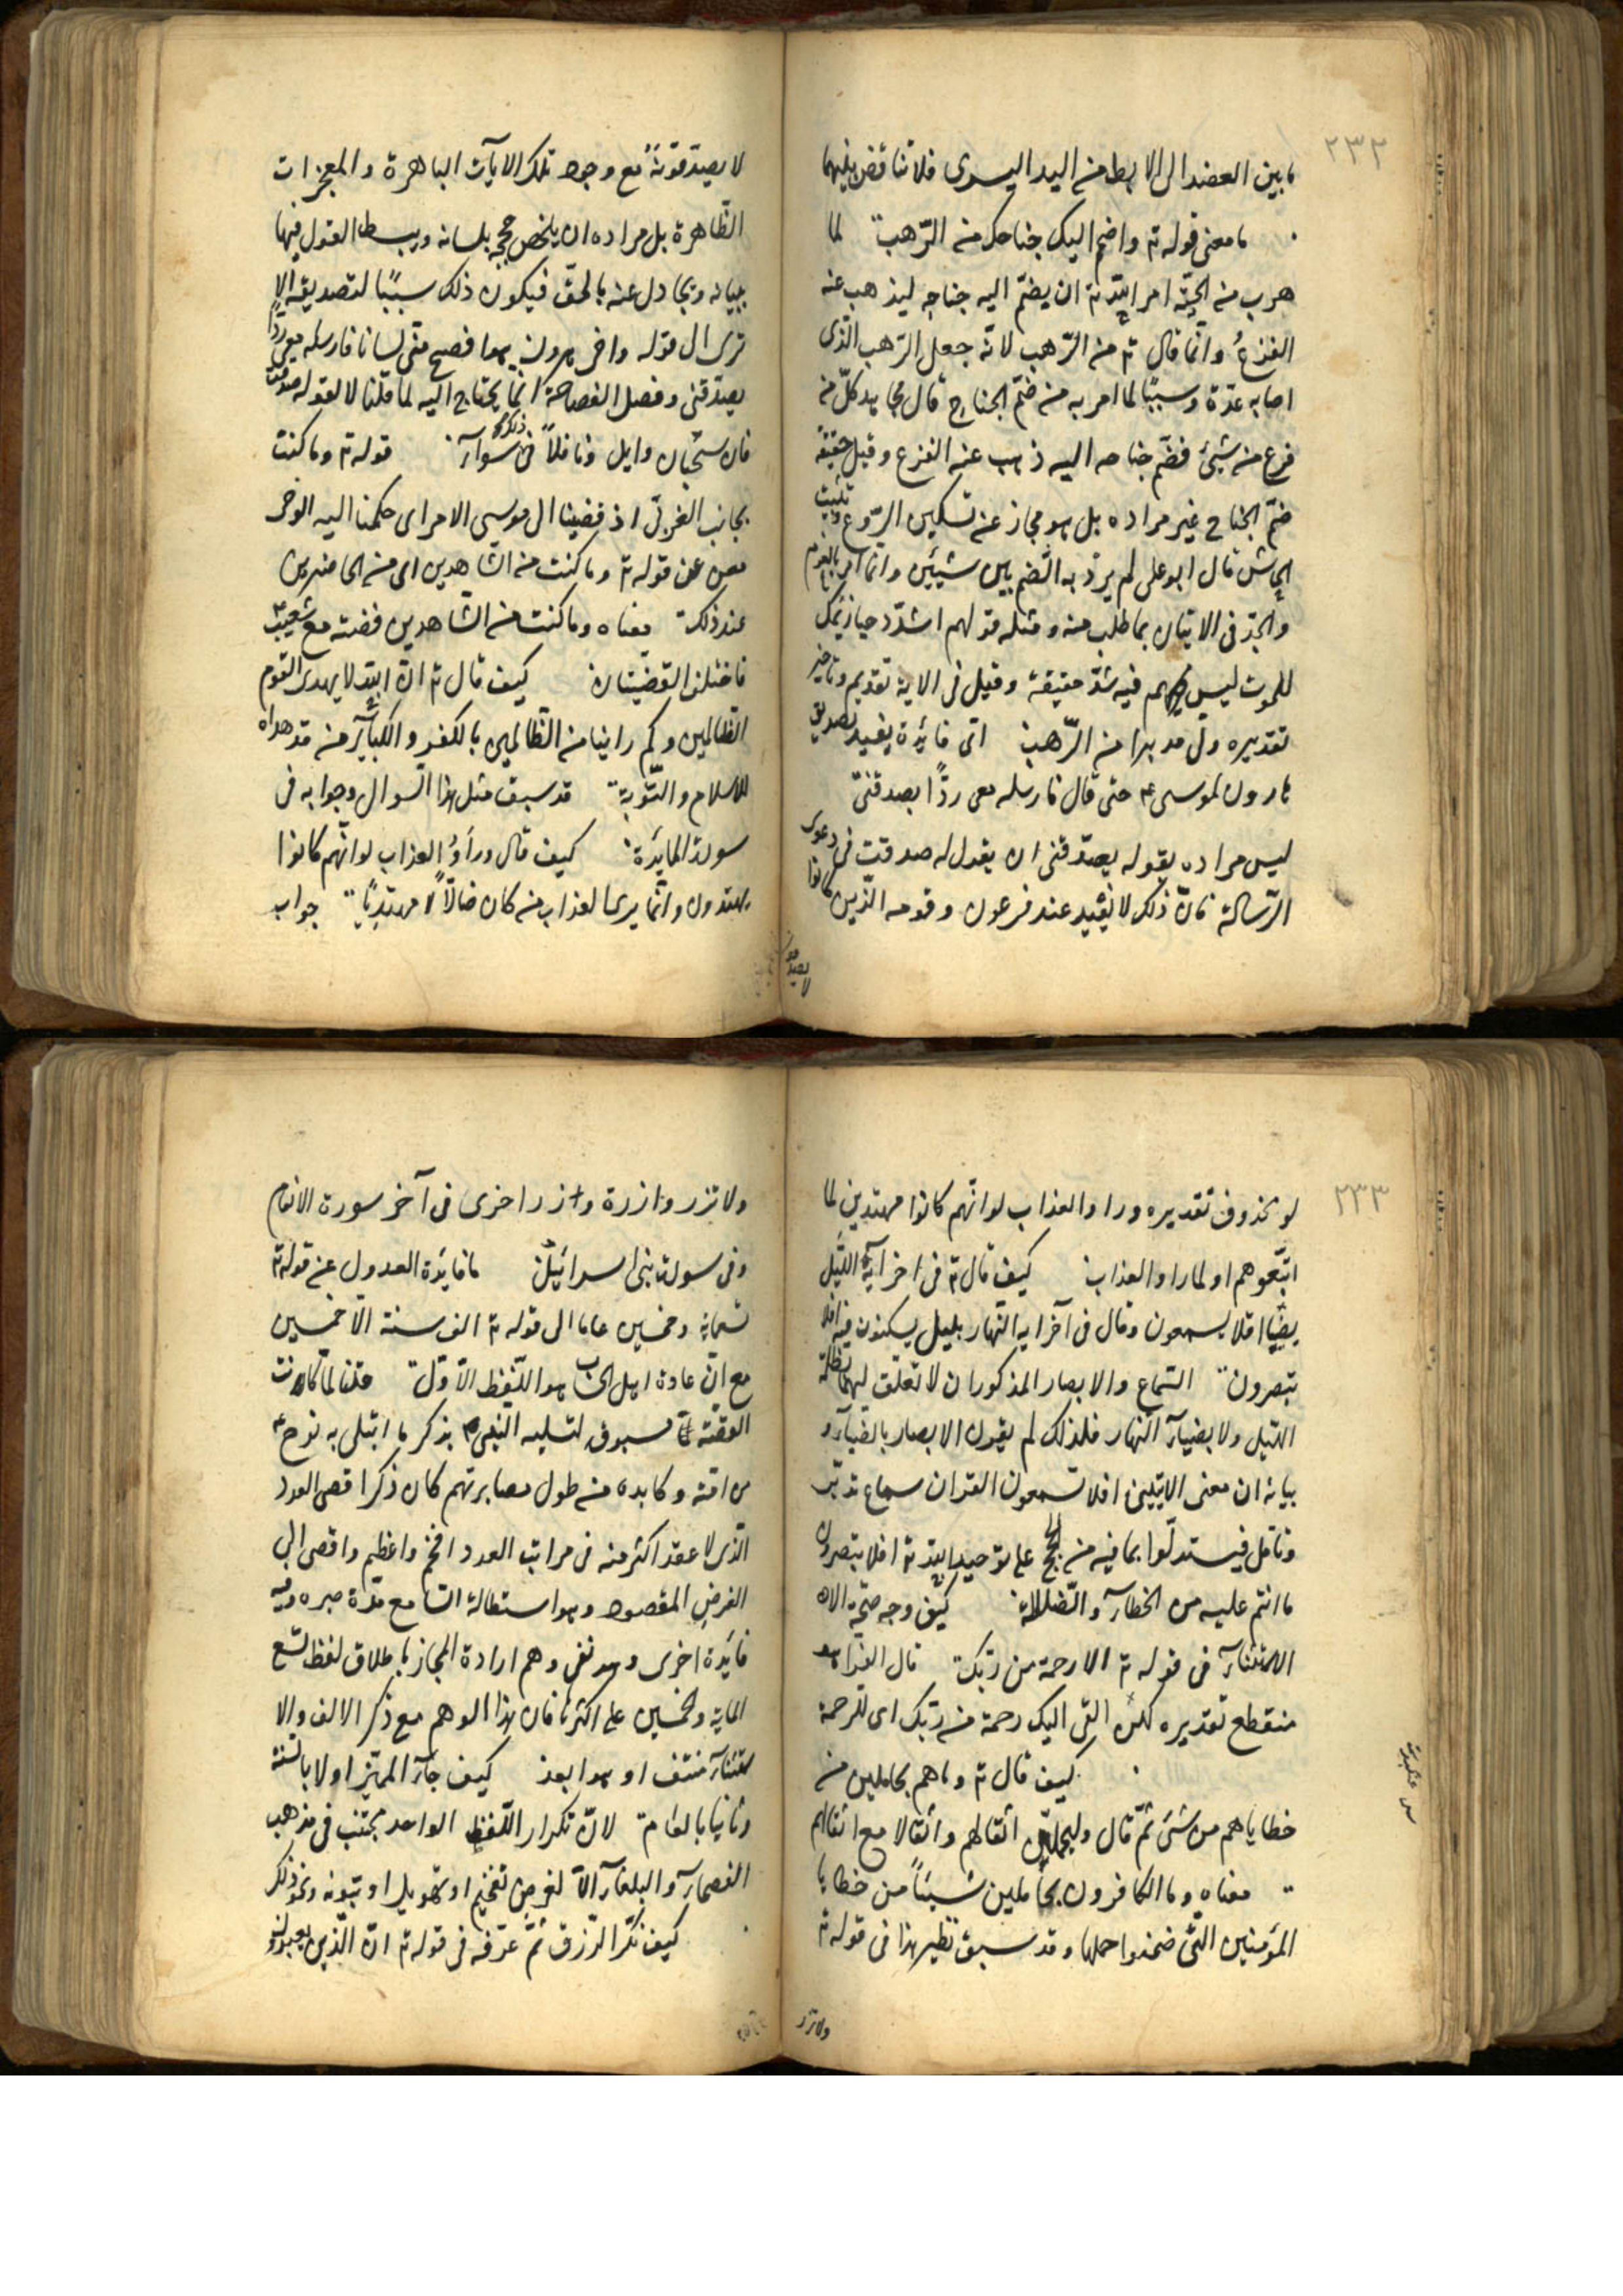 ٢٣٢
ما بين العضد الى الابط من اليد اليسرى فلا تناقض بينهما
ما معنى قوله تع واضمم اليك جناحك من الرّهب لما
هرب من الحيّة امر اللّه تع ان يضمّ اليه جناحه ليذهب عنه
الفزع وانّما قال تع من الرّهب لانّه جعل الرّهب الّذى
اصابه علّة وسببًا لما امر به من ضمّ الجناح قال مجاهد كلّ من
فزع من شيئ فضمّ جناحه اليه ذهب عنه الفزع وقيل حقيقة
ضمّ الجناح غير مراده بل هو مجاز عن تسكين الرّوع وتثبيت
الجاش قال ابو على لم يرد به الضّم بين شيئين وانّما امر بالعزم
والجدّ فى الاتيان بما طلب منه ومثله قولهم اشدد حيازيمك
للموت ليس فيه شدّ حقيقة وقيل فى الاية تقديم وتاخير
تقديره ولّى مدبرا من الرّهب اىّ فائدة يفيد تصديق
هارون لموسى ع حتّى قال فارسله معى ردًا يصدقنى
ليس مراده بقوله يصدّقنى ان يقول له صدقت فى دعوى
الرّسالة فانّ ذلك لا يفيد عند فرعون وقومه الّذين كانوا
لا يصدقو
لا يصدّقونه مع وجود تلك الايآت الباهرة والمعجزات
الظّاهرة بل مراده ان يلخص حججه بلسانه ويبسط القول فيها
ببيانه ويجادل عنه بالحقّ فيكون ذلك سببًا لتصديقه الا
ترى الى قوله واخى هرون هوا فصح منّى لسانا فارسله معى ردًا
يصدّقنى وفضل الفصاحة انّما يحتاج اليه لما قلنا لا لقوله صدقت
فان سحبان وايل وناقلاً فى ذلك سوآء قوله تع وما كنت
بجانب الغربىّ اذ قضينا الى موسى الامر اى حكمنا اليه الوحى
مغن عن قوله تع وما كنت من الشّاهدين اى من الحاضرين
عند ذلك معناه وما كنت من الشّاهدين قصّته مع شعيب
فاختلفت القضيّتان كيف قال تع انّ اللّه لا يهدى القوم
الظّالمين وكم راينا من الظّالمين بالكفر والكبآير من قد هداه
للاسلام والتّوبة قد سبق مثل هذا السّوال وجوابه فى
سورة المايدة كيف قال وراَوُ العذاب لو انّهم كانوا
يهتدون وانّما يرى العذاب من كان ضالّاً لا مهتديًا جواب
٢٣٣
لو محذوف تقديره وراوا العذاب لو انّهم كانوا مهتدين لما
اتّبعوهم او لما راوا العذاب كيف قال تع فى اخر آية اللّيل
بضيآء افلا يسمعون وقال فى آخر اية النّهار بليل يسكنون فيه افلا
تبصرون السّماع والابصار المذكوران لا تعلّق لهما بظلمة
اللّيل ولا بضيآء النّهار فلذلك لم يقرن الابصار بالضيآء و
بيانه ان معنى الايتين افلا تسمعون القران سماع تدبّر
وتامّل فيستدلّوا بما فيه من الحجج على توحيد اللّه تع افلا تبصرون
ما انتم عليه من الخطآء والضّلالة كيف وجه صحّة الا
الاستثنآء فى قوله تع الا رحمة من ربّك قال الفرّا هو
منقطع تقديره لكن القى اليك رحمة من ربّك اى للرحمة
كيف قال تع وما هم بحاملين من
خطاياهم من شئ ثمّ قال وليحملنّ اثقالهم واثقالا مع اثقالهم
معناه وما الكافرون بحاملين شيئاً من خطايا
المؤمنين الّتى ضمنوا حملها وقد سبق نظير هذا فى قوله تع
س عنكبوت
ولا تزر
ولا تزر وازرة وزر اخرى فى آخر سورة الانعام
وفى سورة بنى اسرائيل ما فايدة العدول عن قوله تع
تسعماية وخمسين عاما الى قوله تع الف سنة الّا خمسين
مع انّ عادة اهل الحساب هو اللّفظ الاوّل قلنا لمّا كانت
القصّة مسبوقة لتسلية النبى ص بذكر ما ابتلى به نوح ع
من امّته وكابده من طول مصابرتهم كان ذكر اقصى العدد
الّذى لا عقد اكثر منه فى مراتب العدد افخم واعظم واقصى الى
الغرض المقصود وهو استطالة السّامع مدّة صبره وفيه
فايدة اخرى وهو نفى وهم ارادة المجاز باطلاق لفظ التّسع
الماية والخمسين على اكثرها فان هذا الوهم مع ذكر الالف والا
ستثنآء منتف او هوا بعد كيف جآء المميّز اولا بالسّنة
وثانيا بالعام لانّ تكرار اللّفظ الواحد مجتنب فى مذهب
الفصحآء والبلغآء الّا لغرض تفخيم او تهويل او تنويه ونحو ذلك
كيف نكّر الرّزق ثمّ عرّفه فى قوله تع انّ الّذين تعبدون